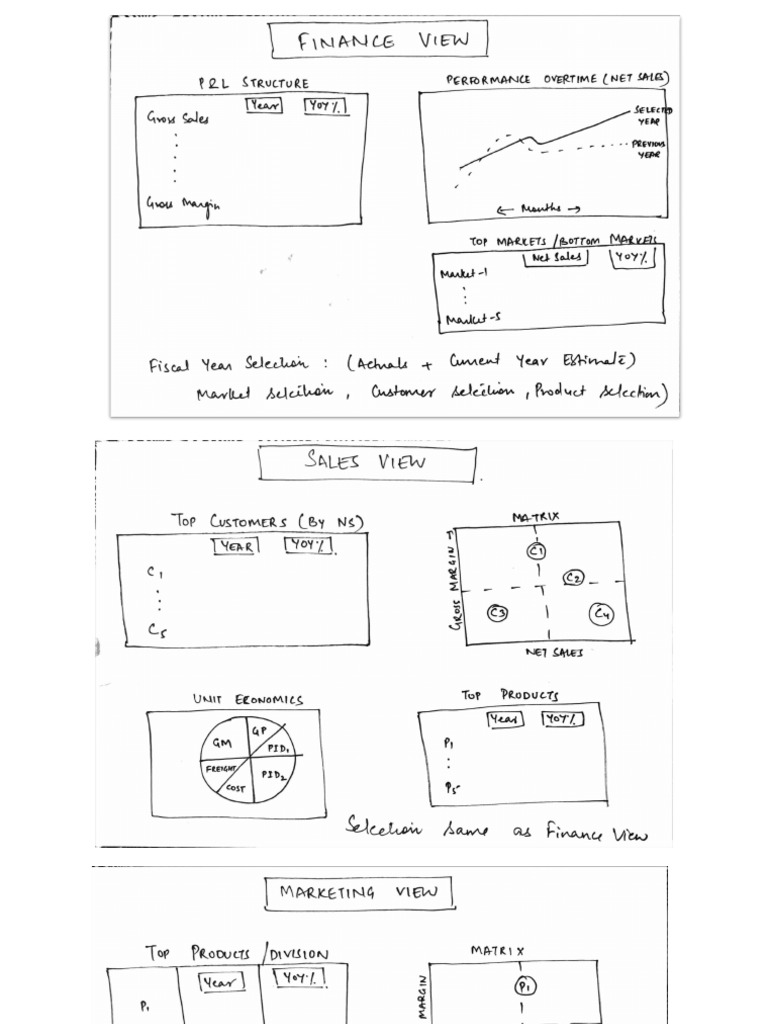 FINANCE VIEW
P&L STRUCTURE
Year YOY%
Gross Sales
Gross Margin
PERFORMANCE OVERTIME (NET SALES)
SELECTED YEAR
PREVIOUS YEAR
← Months →
TOP MARKETS/BOTTOM MARKETS
Net Sales YOY%
Market-1
Market-5
Fiscal Year Selection : (Actuals + Current Year Estimate)
Market selection, Customer selection, Product selection)
SALES VIEW
TOP CUSTOMERS (BY NS)
YEAR YOY%
C1
C5
MATRIX
GROSS MARGIN →
C1
C2
C3
C4
NET SALES
UNIT ECONOMICS
GM
GP
PID1
FREIGHT
COST
PID2
TOP PRODUCTS
Year YOY%
P1
P5
Selection same as Finance View
MARKETING VIEW
TOP PRODUCTS/DIVISION
Year YOY%
P1
MATRIX
MARGIN
P1